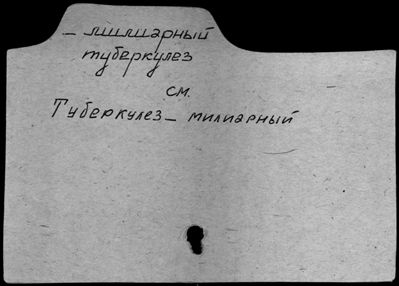 – милиарный
туберкулез
см.
Туберкулез – милиарный